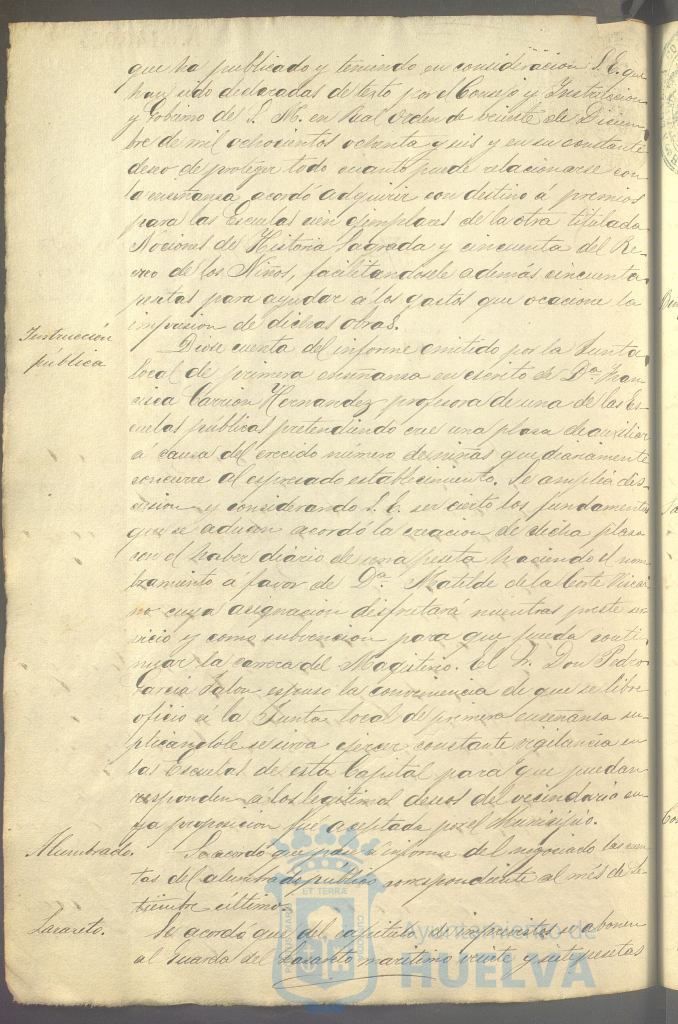 que ha publicado y teniendo en consideracion S. E. que
han sido declaradas de texto por el Consejo y Instruccion
y Gobierno de S. M. en Real orden de veinte de Diciem-
bre de mil ochocientos ochenta y seis y en su constante
deseo de proteger todo cuanto puede relacionarse con
la enseñanza, acordó adquirir con destino á premios
para las Escuelas cien ejemplares de la obra titulada
Nociones de Historia Sagrada y cincuenta del Re-
creo de los Niños, facilitandosele además cincuenta
pesetas para ayudar a los gastos que ocacione la
impresion de dichas obras.
Instrucción
publica
Diose cuenta del informe emitido por la Junta
local de primera enseñanza en escrito de Dª. Fran-
cisca Carrion Hernandez profesora de una de las Es-
cuelas publicas pretendiendo cree una plasa de auxiliar
á causa del crecido número de niñas que diariamente
concurre al espresado establecimiento. Se amplia dis-
cusion y considerando S. E. ser cierto los fundamentos
que se aducen acordó la creacion de dicha plasa
con el haber diário de una peseta haciendo el nom-
bramiento a favor de Dª. Matilde de la Corte Viscai
no cuya asignacion disfrutará mientras preste ser
vicio y como subvencion para que pueda conti-
nuar la carrera del Magisterio. El Sr. Don Pedro
Garcia Jalon espuso la conveniencia de que se libre
oficio á la Junta local de primera enseñansa su-
plicandole se sirva ejercer constante vigilancia en
las Escuelas de esta Capital para que puedan
responder á los legitimos deseos del vecindario cu-
ya proposicion fue aceptada por el Municipio.
Alumbrado.
Se acordó que pase a informe del negociado las cuen
tas del alumbrado público correspondiente al més de Se-
tiembre ultimo.
Lazareto.
Se acordó que del capitulo de imprevistos se abonen
al Guarda del Lazareto maritimo veinte y siete pesetas
Ayuntamiento de
HUELVA